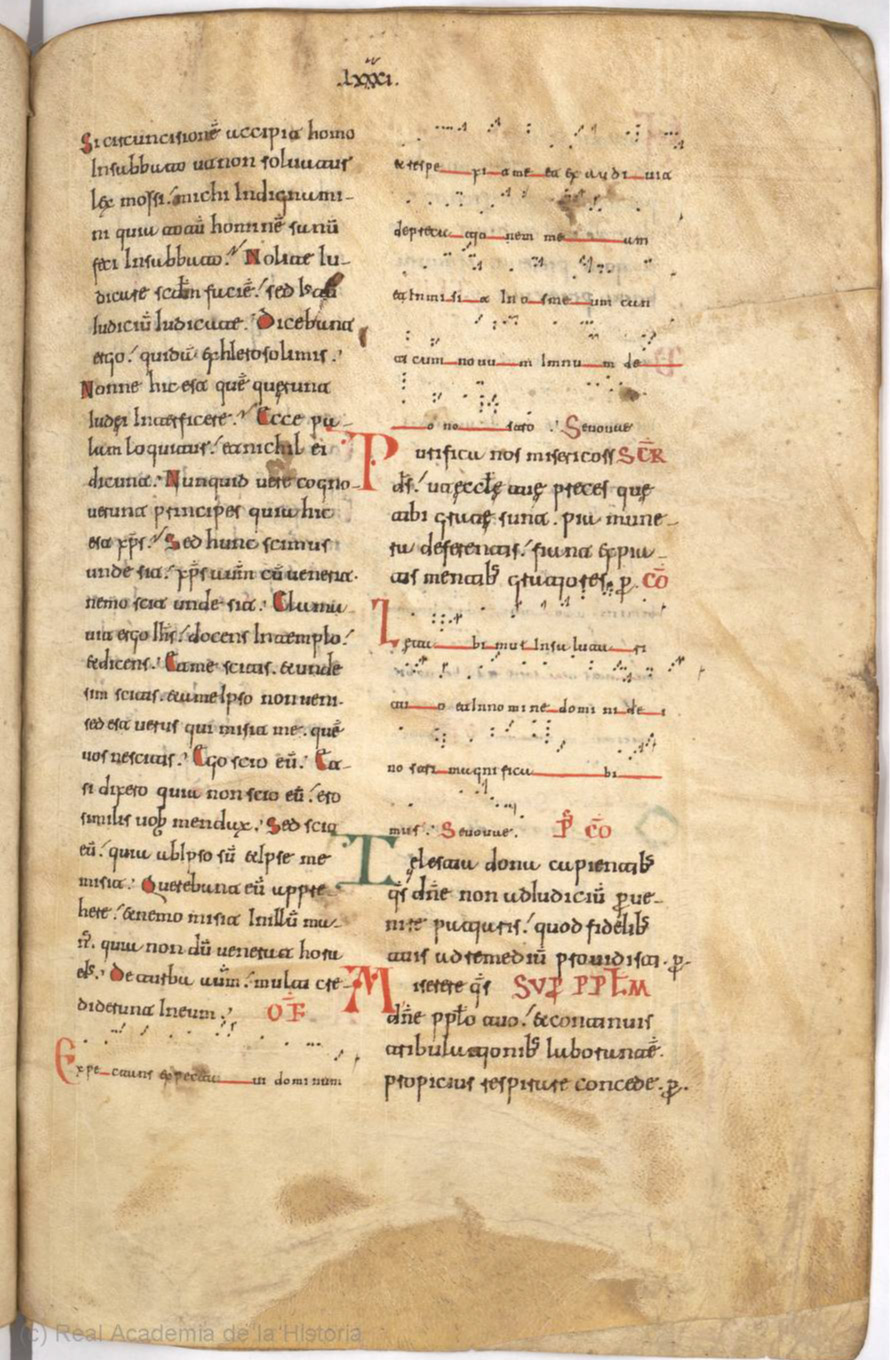 .lxxxi.
Si circuncisionē accipit homo
In sabbato ut non soluatur
lex mossi. michi Indignami-
ni quia totū hominē sanū
feci In sabbato. Nolite Iu-
dicare scdm faciē. sed
Iudiciū Iudicate. Dicebant
ergo. quidā ex hIerosolimis.
Nonne hic est quē querunt
Iudei Interficere. Ecce pa-
lam loquitur. et nichil ei
dicunt. Nunquid uere cogno-
uerunt principes quia hic
est xp̄s. Sed hunc scimus
unde sit. xp̄s autm cū uenerit.
nemo scit unde sit. Clama-
uit ergo Ihs̄. docens In templo.
et dicens. Et me scitis. et unde
sim scitis. et a me Ipso non ueni.
sed est uerus qui misit me. quē
uos nescitis. Ego scio eū. Et
si dixero quia non scio eū. ero
similis uob mendax. Sed scio
eū. quia ab Ipso sū et Ipse me
misit. Querebant eū appre-
here. et nemo misit In illū ma-
n̄. quia non dū uenerat hora
eIs. De turba autm. multi cre-
diderunt In eum. OF̄
Expectans expectaui dominum
et respexit me et exaudiuit
deprecationem meum
et Inmisit In os meum can
ticum nouum Imnum deo
nostro. Seuouae
Purifica nos misericors SCR̄
ds̄. ut eccle tue preces que
tibi grate sunt. pia mune-
ra deferentis. fiunt expia-
tis mentib gratiores. p. CŌ
Letabimus In salutari
tuo et In nomine domini dei
nostri magnificabi
mus. Seuouae. P̄ CŌ
Celestia dona capientib
qs̄ dn̄e non ad Iudiciū peruenire
nire patiaris. quod fidelib
tuis ad remediū prouidisti. p.
Miserere qs̄ SUP PPLM
dn̄e pplo tuo. et continuis
tribulationib laborantē.
propicius respirare concede. p.
(c) Real Academia de la Historia